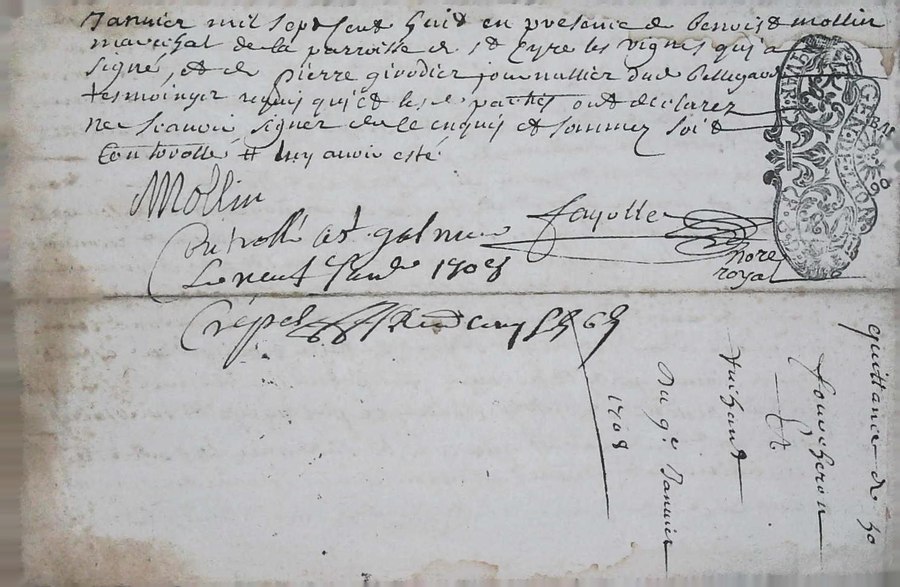 Januier mil sept Cent huit en presence de benoist mollin
mareschal de la parroisse de st Cyre les vignes qui a
signé, et de Pierre girodier journallier dud bellegarde
tesmoingz requis qui et les parties ont declarez
ne scauoir signer de ce enquis et sommez soit
Controllé luy auoir esté
Mollin
Controllé a st galmier
Le neuf Janu 1708
fayolle
nore
royal
GEN DE LYON
Crépet
quittance de 50
fouucheron
et
du 9e Januier
1708